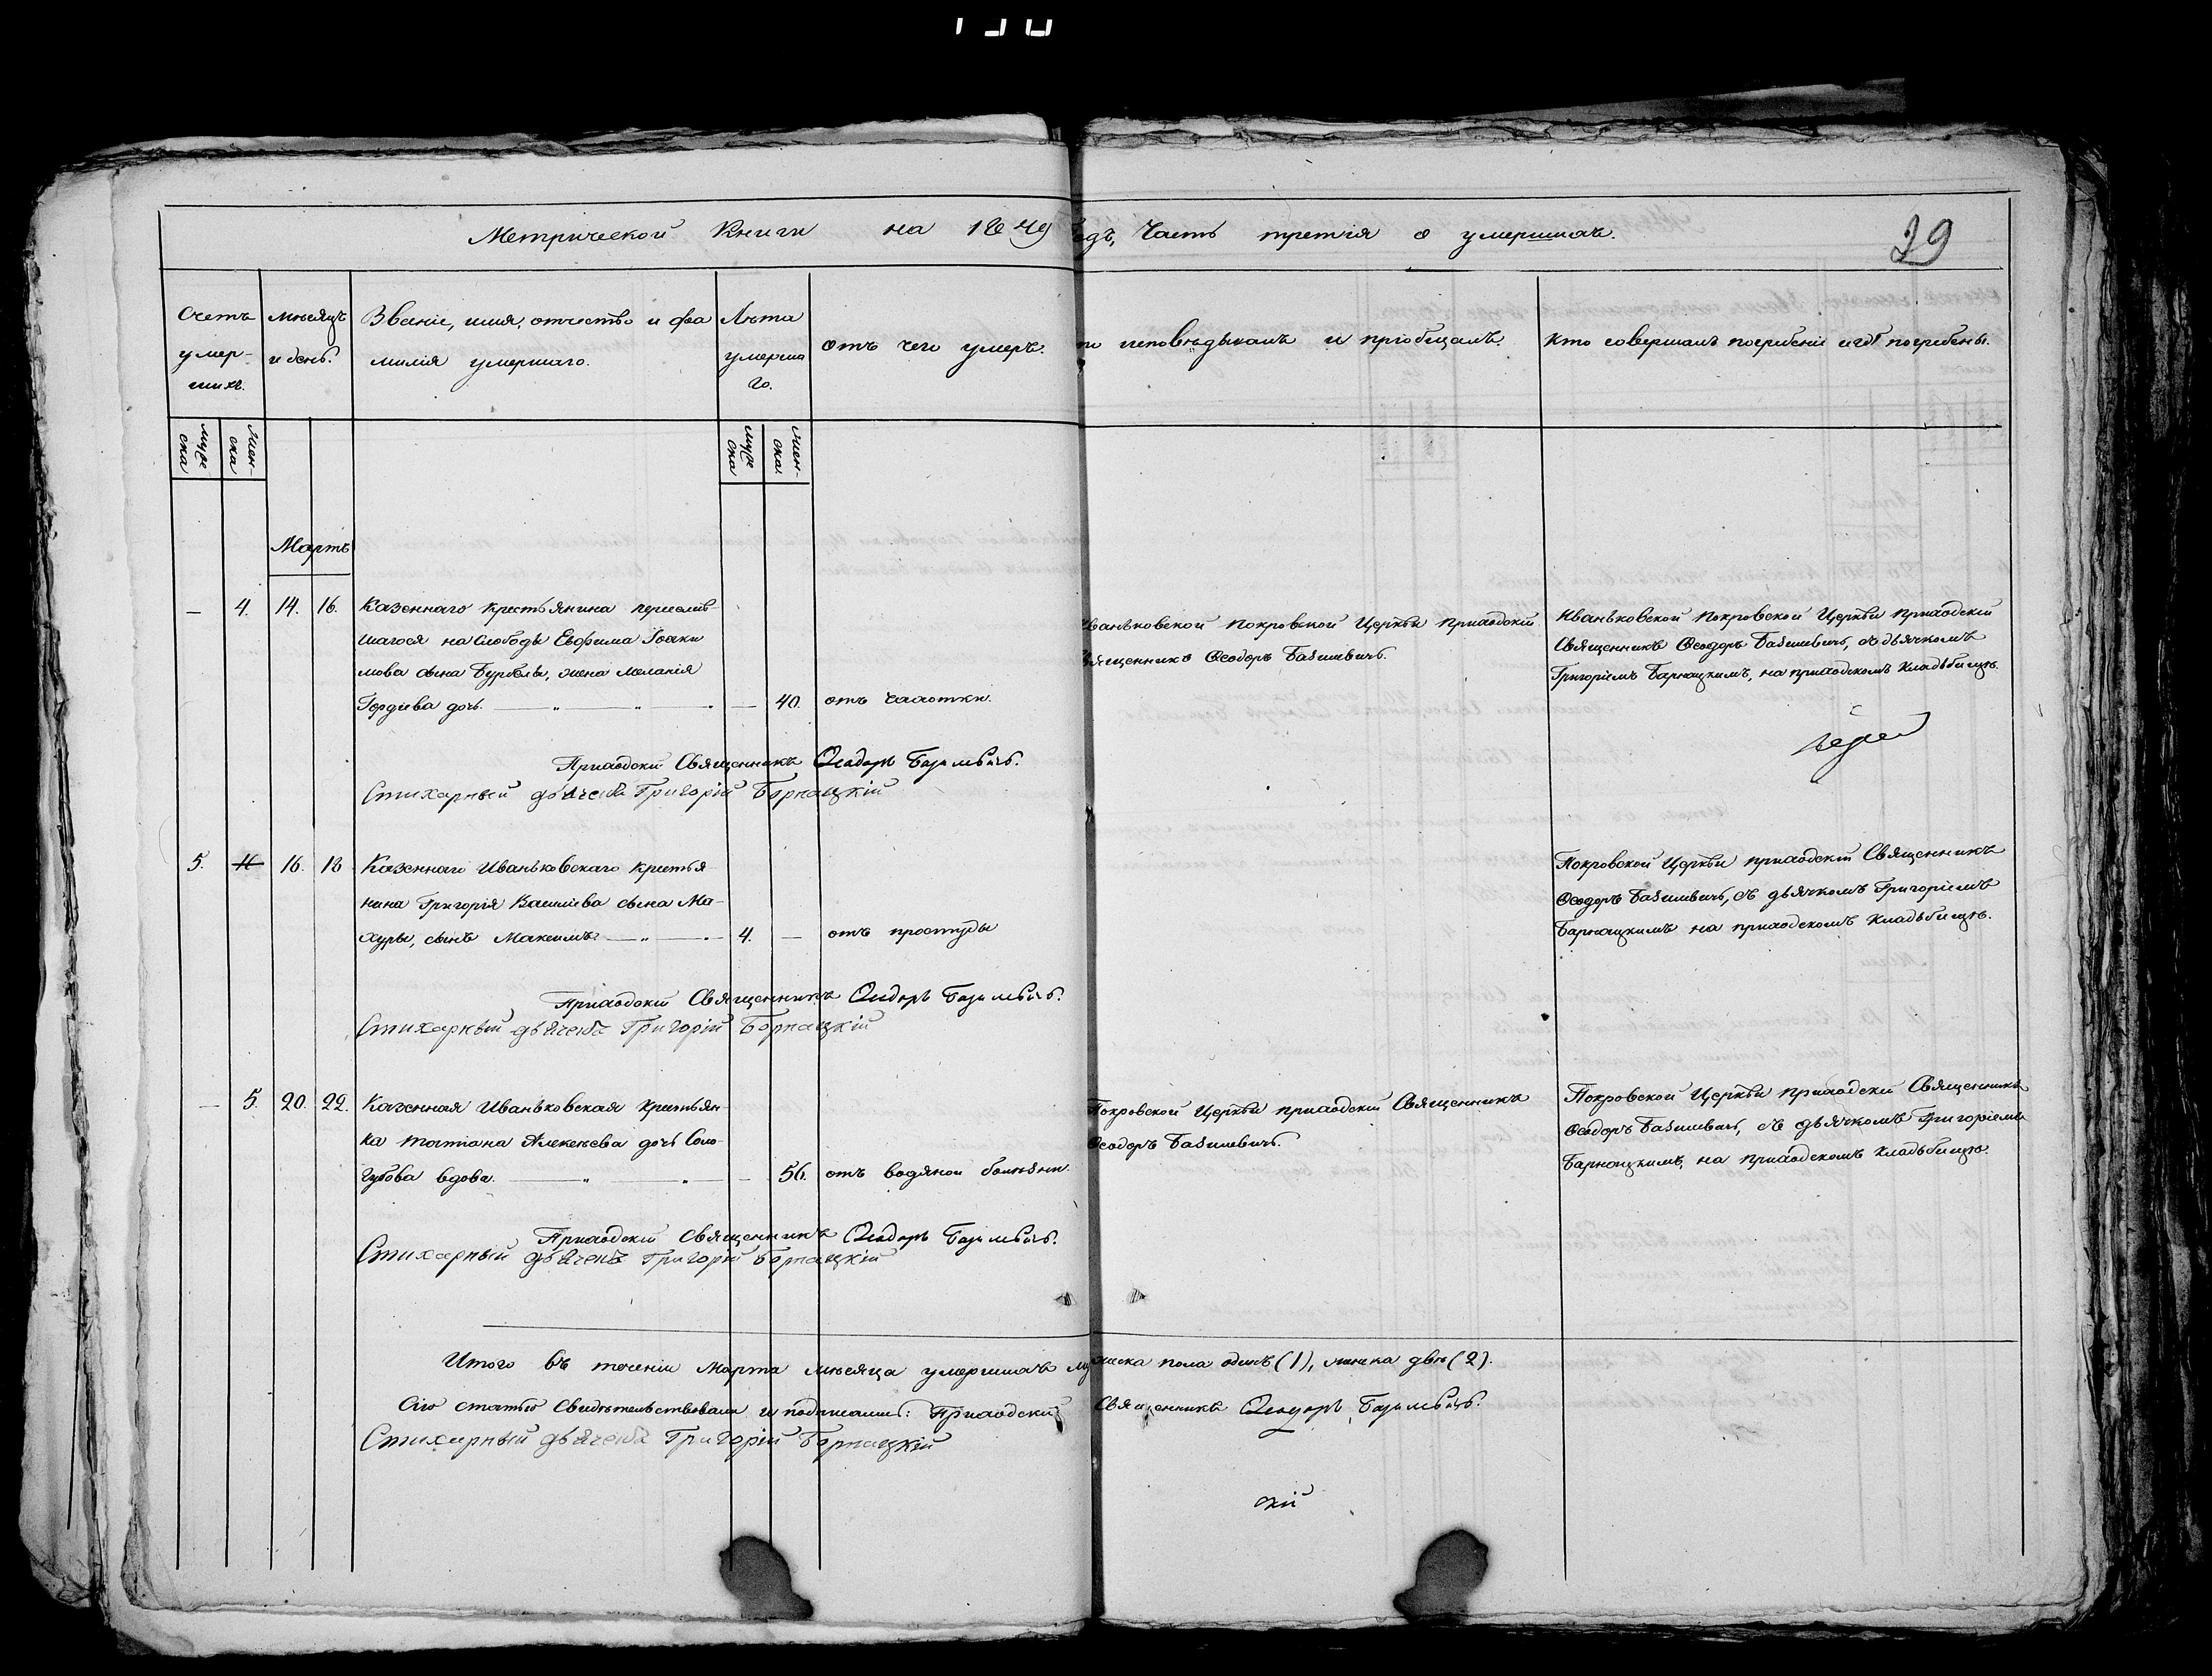 Метрической Книги на 1849 годъ, Часть третія о умершихъ.
29
Счетъ умер-шихъ.
мѣсяцъ и день.
Званіе, имя, отчество и фа
милія умершаго.
Лѣта умерша го.
отъ чего умеръ.
исповѣдывалъ и пріобщалъ.
Кто совершалъ погребеніе и гдѣ погребены.
муже ска
жен-ска
муже ска
жен-ска.
Мартъ
— 4. 14. 16. Казеннаго крестьянина переселив-
шагося на Слободы Евфима Іоаки
мова сына Бурбелы, жена Меланія
Гордіева дочь. — 40. отъ чахотки.
Иваньковской Покровской Церкви Приходскій
Священникъ Ѳеодоръ Базилевичъ.
Иваньковской Покровской Церкви Приходскій
Священникъ Ѳеодоръ Базилевичъ, съ дьячкомъ
Григоріемъ Барнацкимъ, на приходскомъ кладбищѣ.
Іерей
Приходскій Священникъ Ѳеодоръ Базилевичъ.
Стихарный дьячекъ Григорій Борнацкій
5. 4 16. 18 Казеннаго Иваньковскаго крестья
нина Григорія Василіева сына Ма-
хуры, сынъ Максимъ — 4. — отъ простуды
Покровской Церкви приходскій Священникъ
Ѳеодоръ Базилевичъ, съ дьячкомъ Григоріемъ
Барнацкимъ на приходскомъ кладбищѣ.
Приходскій Священникъ Ѳеодоръ Базилевичъ.
Стихарный дьячекъ Григорій Борнацкій
— 5. 20. 22. Казенная Иваньковская крестьян
ка Татіана Алексѣева дочь Соло-
губова вдова. — 56. отъ водяной болѣзни.
Покровской Церкви приходскій Священникъ
Ѳеодоръ Базилевичъ.
Покровской Церкви Приходскій Священникъ
Ѳеодоръ Базилевичъ, съ дьячкомъ Григоріемъ
Барнацкимъ, на приходскомъ кладбищѣ.
Приходскій Священникъ Ѳеодоръ Базилевичъ.
Стихарный дьячекъ Григорій Борнацкій
Итого въ теченіи Марта мѣсяца умершихъ мужеска пола одинъ (1), женска двѣ (2).
Сію статью Свидѣтельствовали и подписали: Приходскій Священникъ Ѳеодоръ Базилевичъ.
Стихарный дьячекъ Григорій Борнацкій
скій